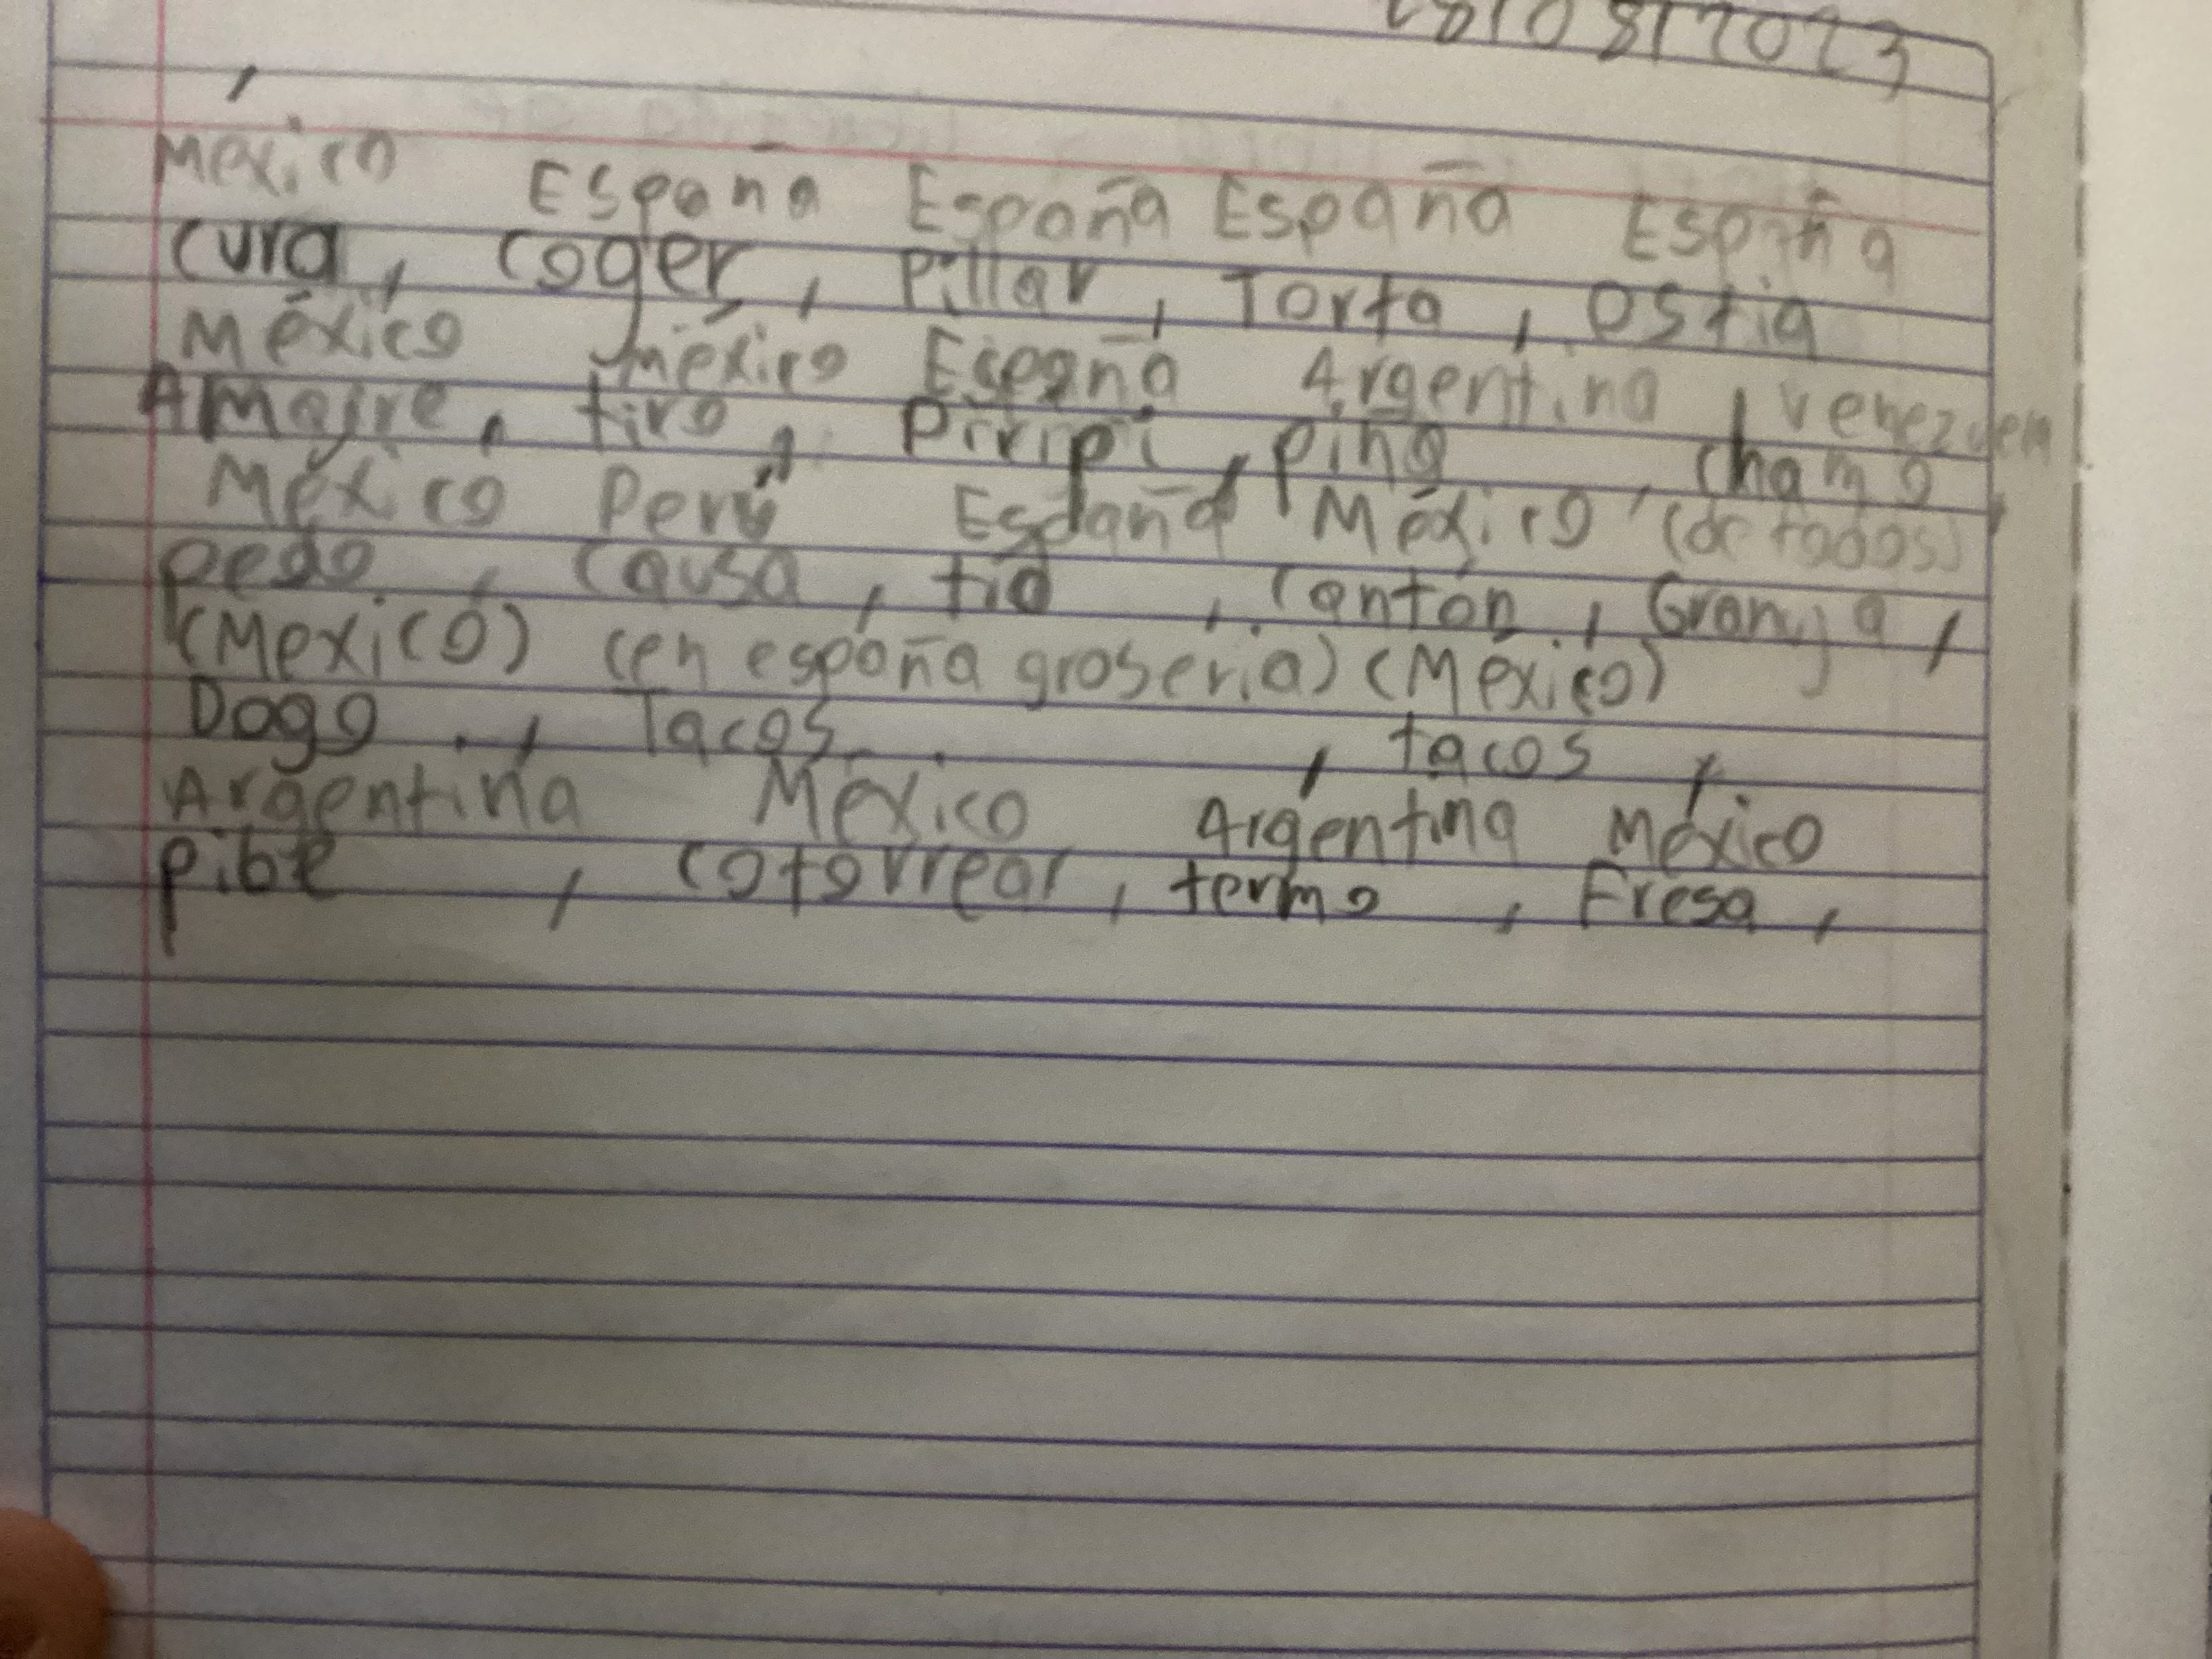 28/08/2023
México España España España España
Cura, Coger, Pillar, Torta, Ostia
México México España Argentina, Venezuem
Almajre, tiro, Piripi, piña, chamo,
México Perú España México (de todos)
pedo, Causa, tio, Cantón, Granja,
(México) (en españa groseria) (México)
Dogo, Tacos, tacos,
Argentina México Argentina México
Pibe, Cotorrear, termo, Fresa,